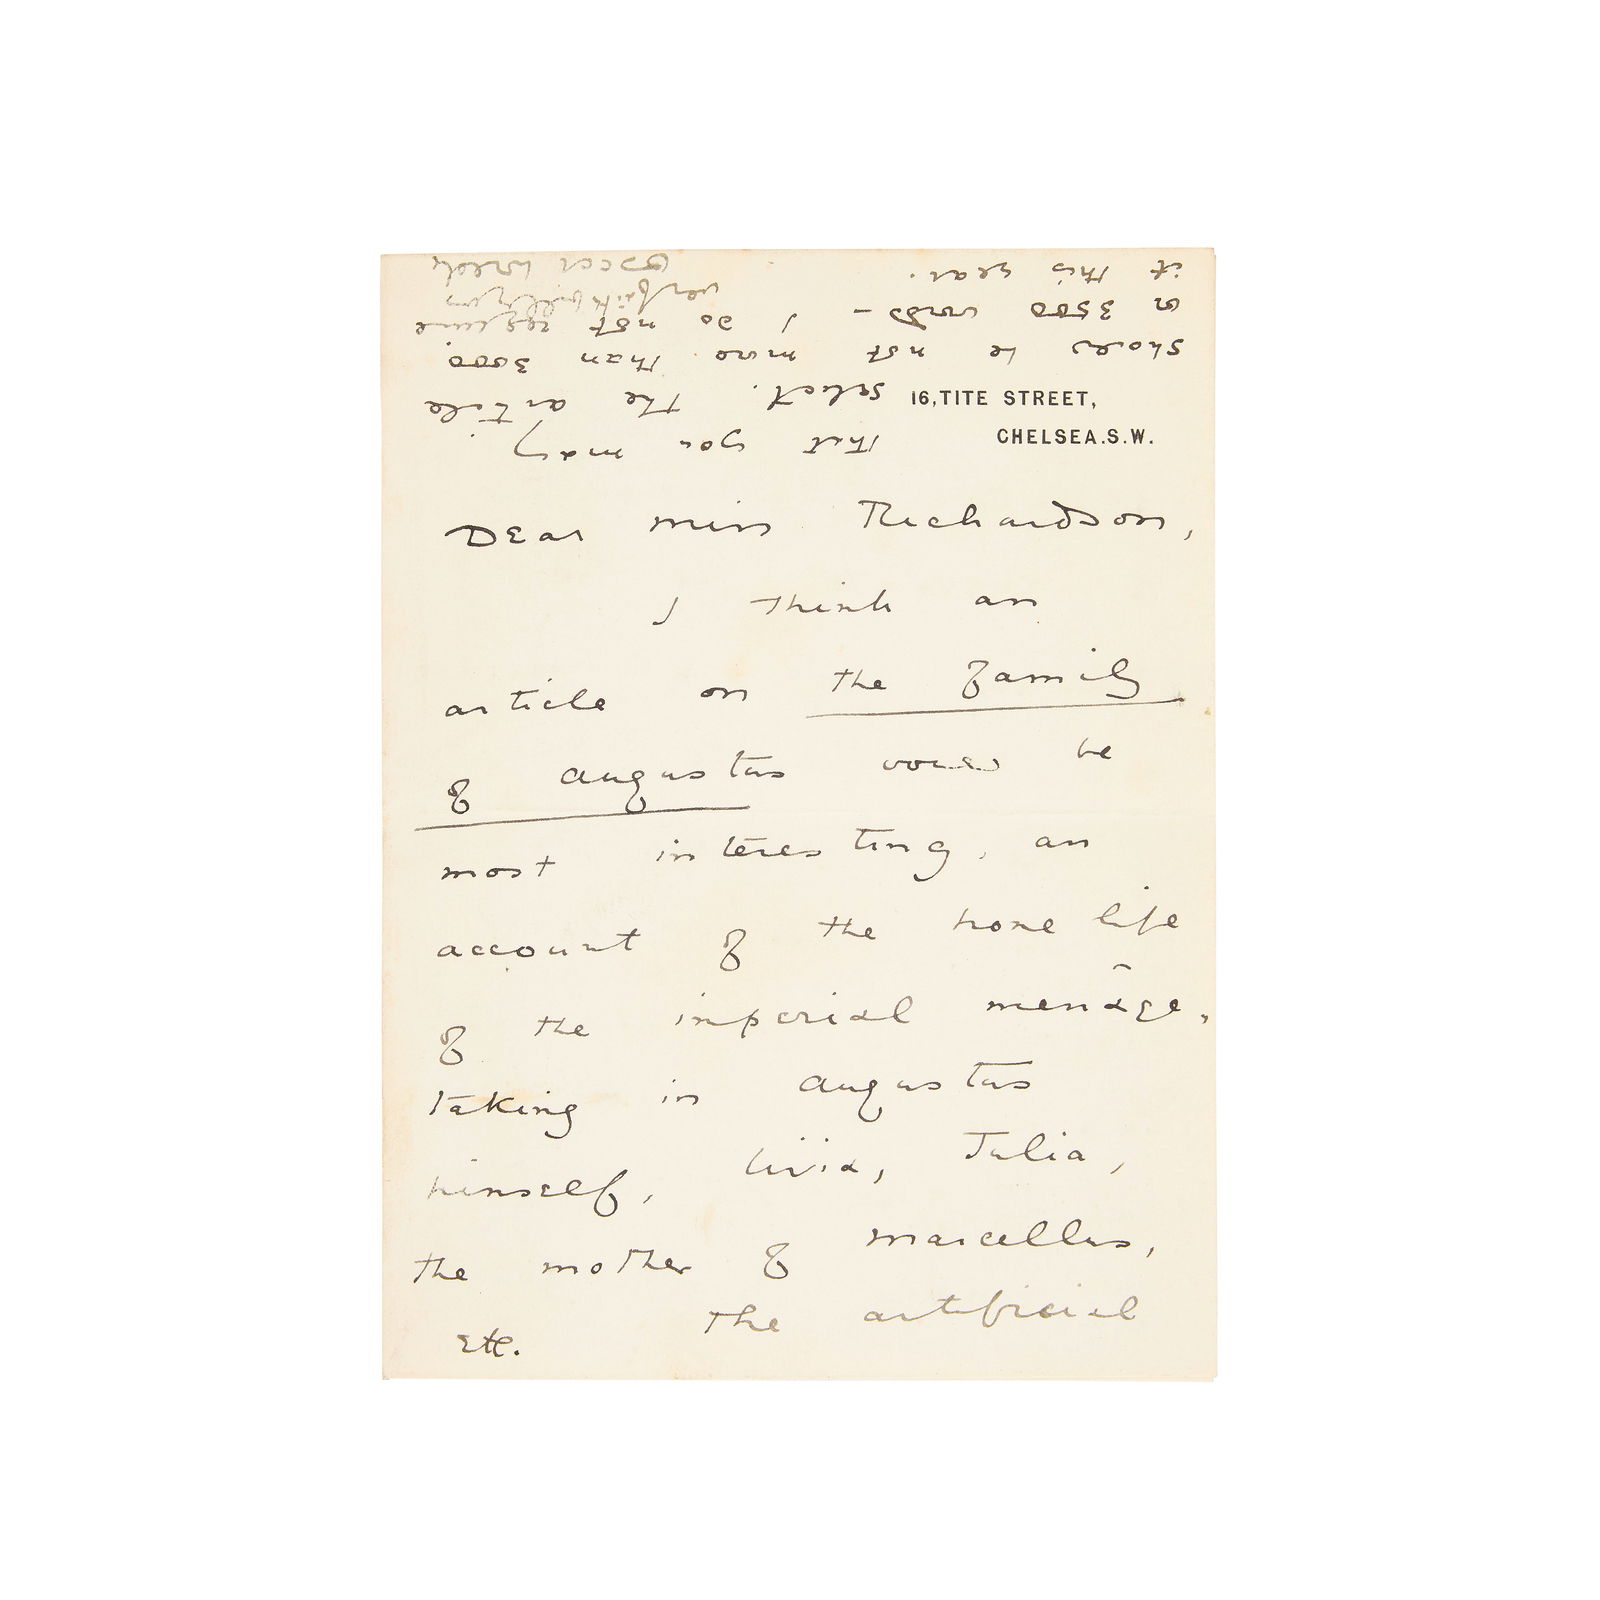 16, TITE STREET,
CHELSEA. S.W.
Dear Miss Richardson,
I think an
article on the family
of Augustus would be
most interesting, an
account of the home life
of the imperial menâge,
taking in Augustus
himself, Livia, Julia,
the mother of Marcellus,
etc. The artificial
that you may
select. The article
should be not more than 3000,
or 3500 words — I do not require
it this year. very faithfully yours
Oscar Wilde